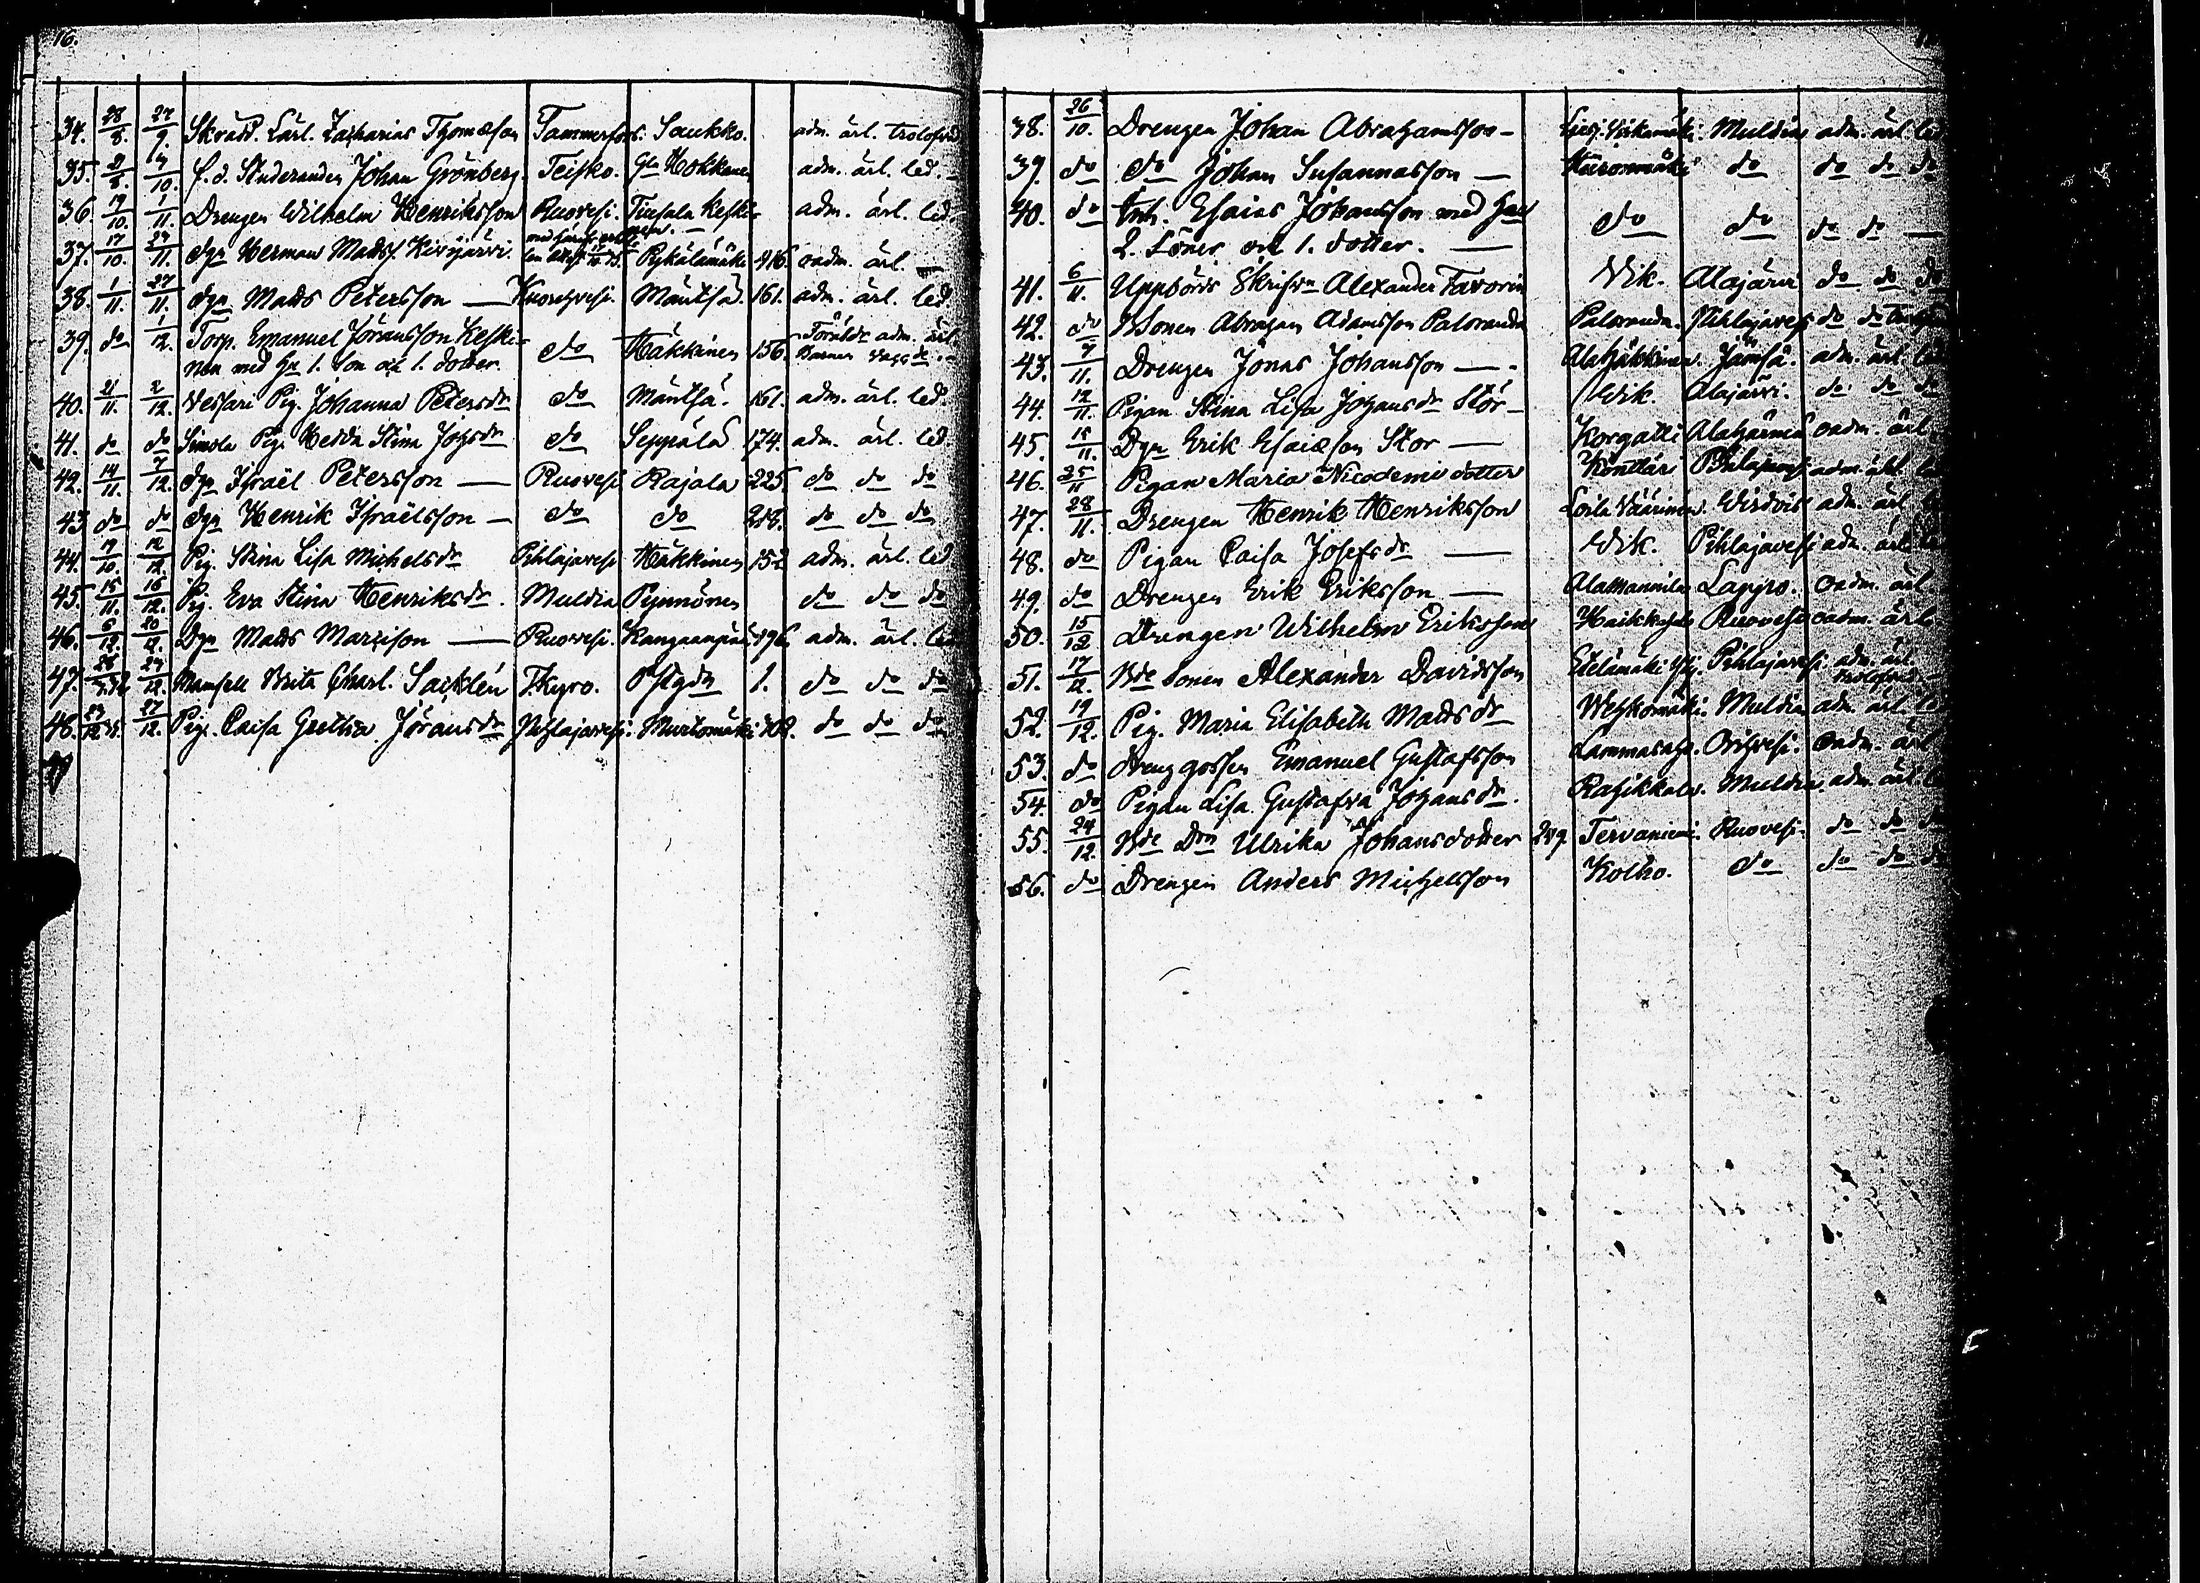 16.
34. 28/8. 27/9. Skrädd. Lärl. Zacharias Thomasson Tammerfors. Saukko. adm. ärl. trolofvad
35. 2/8. 4/10. f. d. Studeranden Johan Grönberg. Teisko. Gla Hokkanen adm. ärl. led.
36. 19/10. 1/11. Drengen Wilhelm Henriksson Ruovesi. adm. ärl. led.
37. 17/10. 29/11. dgn Herman Madsf. Kivijärvi. Pykälämäki 416. oadm. ärl. —
38. 1/11. 27/11. dgn Matts Petersson — Kuorehvesi. Mäntsä. 161. adm. ärl. led.
39. do 1/12. Torp. Emanuel Jöransson Keski- do Häkkinen 156. Föräldr. adm. ärl.
nen med Hu 1. Son och 1. dotter. Barnen
40. 21/11. 2/12. Vessari Pig. Johanna Petersdr do Mäntsä. 161. adm. ärl. led.
41. do do Simola Pig. Hedda Stina Johsdr do Seppälä 174. adm. ärl. led
42. 14/11. 7/12. dgn Israël Petersson — Ruovesi Rajala 225. do do do
43 do do dgn Henrik Israëlsson — do do 218. do do do
44. 19/10. 12/12. Pig. Stina Lisa Michelsdr Pihlajavesi Häkkinen 152 adm. ärl. led
45. 15/11. 16/12. Pig. Eva Stina Henriksdr. Muldia Pynnönen do do do
46. 6/12. 20/12. Dgn Matts Mattson — Ruovesi. Kangaanpää 196. adm. ärl. led
47. 24/12. Mamsell Brita Charl. Sacklén T.Kyro. Pstgdn 1. do do do
48. 27/12. Pig. Caisa Gretha Jöransdr Pihlajavesi. Murtomäki 102. do do do
38. 26/10. Drengen Johan Abrahamsson — Muldia adm. ärl. led
39. do do Johan Susannasson — do do do do
40. do Inh. Esaias Johansson med Hu do do do do —
2. Söner och 1. dotter. —
41. 6/11. Uppbörds Skrifvn Alexander Favorin Wik. Alajärvi do do do
42. do BSonen Abraham Adamsson Paloranda Paloranda. Pihlajavesi do do
43. 9/11. Drengen Jonas Johansson — Alahäkkinen. Jämsä. adm. ärl. led
44. 12/11. Pigan Stina Lisa Johansdr Stor — Wik. Alajärvi. do do do
45. 15/11. Dgn Erik Esaiasson Stor — Korgatti Alahärmä oadm. ärl.
46. 25/11 Pigan Maria Nicodemi dotter Pihlajavesi adm. ärl. led
47. 28/11. Drengen Henrik Henriksson Wirdois adm. ärl.
48. do Pigan Caisa Josefsdr — Wik. Pihlajavesi adm. ärl. led
49. do Drengen Erik Eriksson — Alamannila Lappo. oadm. ärl
50. 15/12 Drengen Wilhelm Eriksson Ruovesi oadm. ärl
51. 17/12. Bde Sonen Alexander Davidsson Pihlajavesi adm. ärl. trolofvad
52. 19/12. Pig. Maria Elisabeth Mattsdr Wehkomäki. Muldia adm. ärl. led
53. do Drenggossen Emanuel Gustafsson Orihvesi. oadm. ärl
54. do Pigan Lisa Gustafva Johansdr. Rahikkala. Muldia adm. ärl.
55. 24/12. Bde Drn Ulrika Johansdotter 249. Tervaniemi. Ruovesi. do do do
56. do Drengen Anders Michelsson Kolho. do do do do